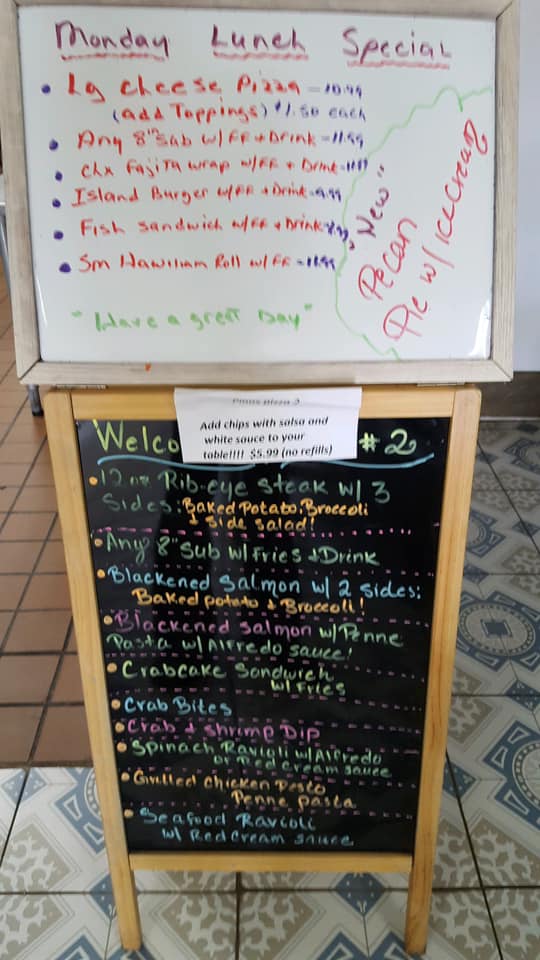 Monday Lunch Special
Lg cheese Pizza - 10.99
(add Toppings) $1.50 each
Any 8" Sub w/ FF + Drink - 11.99
Chx Fajita wrap w/ FF + Drink -
Island Burger w/ FF + Drink - 9.99
Fish Sandwich w/ FF + Drink
Sm Hawiliam Roll w/ FF - 11.99
"Have a great Day"
"New"
Pecan
Pie w/ icecream
Add chips with salsa and
white sauce to your
table!!!! $5.99 (no refills)
Welco #2
12 oz Rib-eye Steak w/ 3
Sides: Baked Potato, Broccoli
+ Side Salad!
Any 8" Sub w/ Fries + Drink
Blackened Salmon w/ 2 Sides:
Baked potato + Broccoli!
Blackened Salmon w/ Penne
Pasta w/ Alfredo Sauce!
Crabcake Sandwich
w/ Fries
Crab Bites
Crab & Shrimp Dip
Spinach Ravioli w/ Alfredo
or Red Cream sauce
Grilled Chicken Pesto
Penne pasta
Seafood Ravioli
w/ Red Cream Sauce